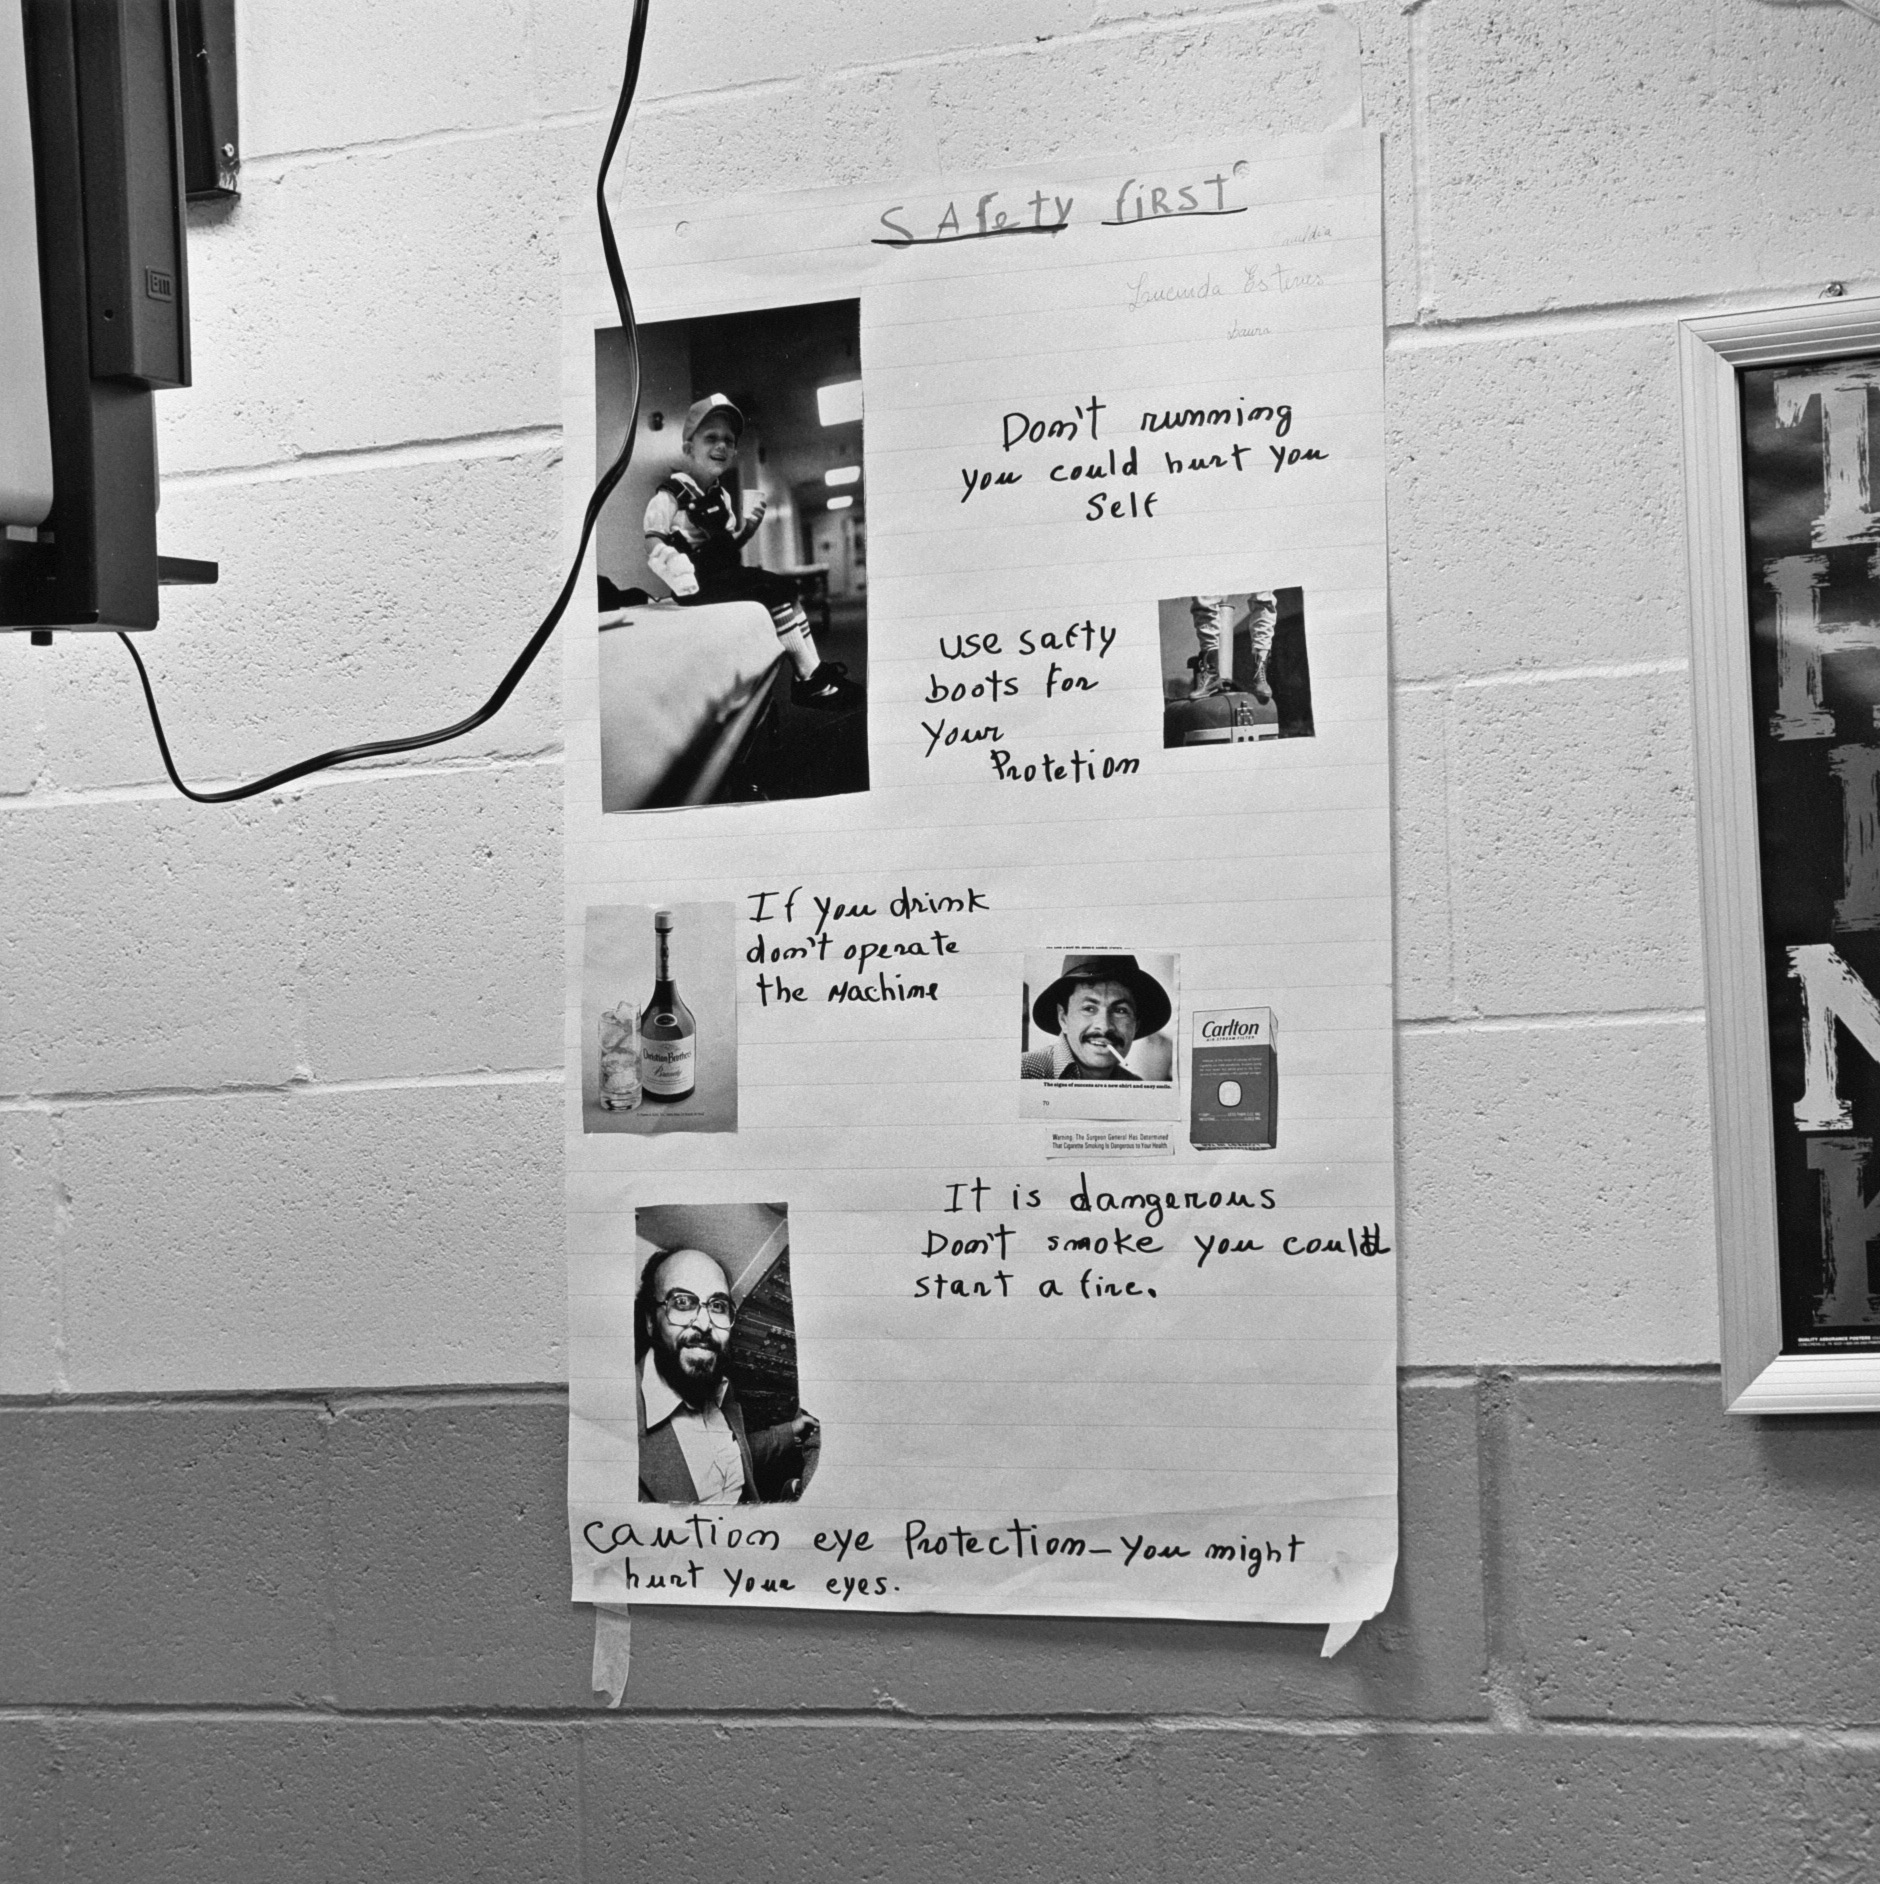 SAfety fiRST
Lucinda Esteves
Laura
Don't running
you could hurt you
Self
use safty
boots for
Your
Protetion
If you drink
don't operate
the Machine
Christian Brothers
Brandy
The signs of success are a new shirt and easy smile.
70
Carlton
AIR-STREAM FILTER
Warning: The Surgeon General Has Determined
That Cigarette Smoking Is Dangerous to Your Health.
It is dangerous
Don't smoke you could
start a fire.
Caution eye Protection – you might
hurt your eyes.
IBM
THIN
QUALITY ASSURANCE POSTERS